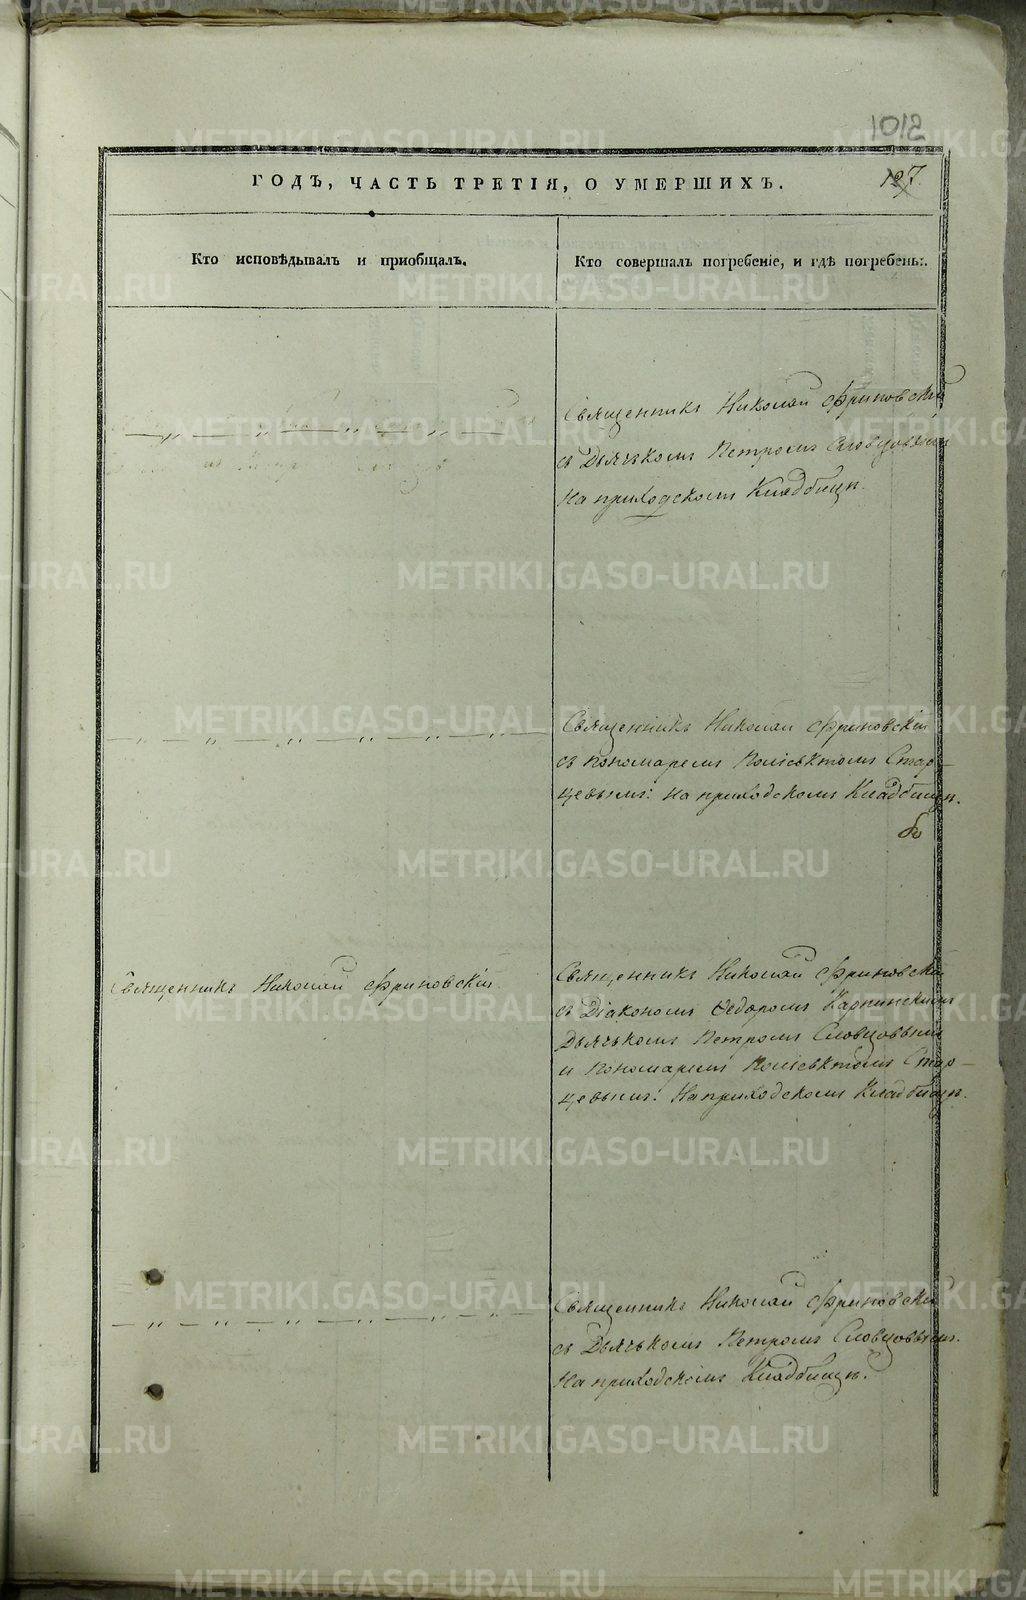 1012
ГОДЪ, ЧАСТЬ ТРЕТІЯ, О УМЕРШИХЪ.
127.
Кто исповѣдывалъ и приобщалъ.
Кто совершалъ погребеніе, и гдѣ погребены:.
Священникъ Николай Фриновскій
съ Дьячькомъ Петромъ Словцовымъ
На приходскомъ Кладбищѣ.
— „ — „ — „ — „ — „ —
Священникъ Николай Фриновскій
съ пономаремъ Поліевктомъ Стар-
цевымъ: На приходскомъ Кладбищѣ.
Священникъ Николай Фриновскій
Священникъ Николай Фриновскій
съ Діакономъ Ѳедоромъ Карпинскимъ
Дьячькомъ Петромъ Словцовымъ
и Пономаремъ Поліевктомъ Стар-
цевымъ: На приходскомъ Кладбищѣ.
— „ — „ — „ — „ — „ —
Священникъ Николай Фриновскій
съ Дьячькомъ Петромъ Словцовымъ.
На приходскомъ Кладбищѣ.
METRIKI.GASO-URAL.RU